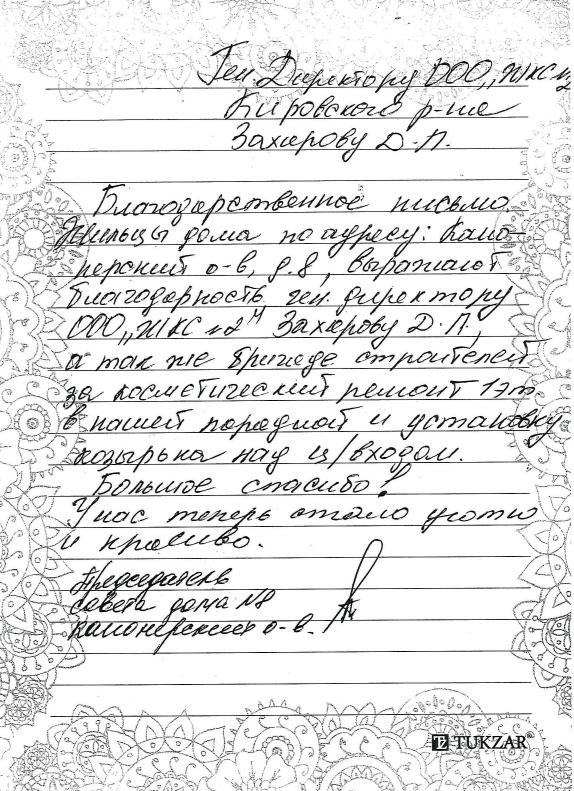 Ген. Директору ООО „ЖКС №2
Кировского р-на
Захарову Д.П.
Благодарственное письмо
Жильцы дома по адресу: Кано-
нерский о-в, д.8, выражают
благодарность ген. директору
ООО „ЖКС №2" Захарову Д.П.,
а так же бригаде строителей
за косметический ремонт 1 эт.
в нашей парадной и установку
козырька над ц/входом.
Большое спасибо!
У нас теперь стало уютно
и красиво.
Председатель
совета дома №8
Канонерский о-в.
TUKZAR